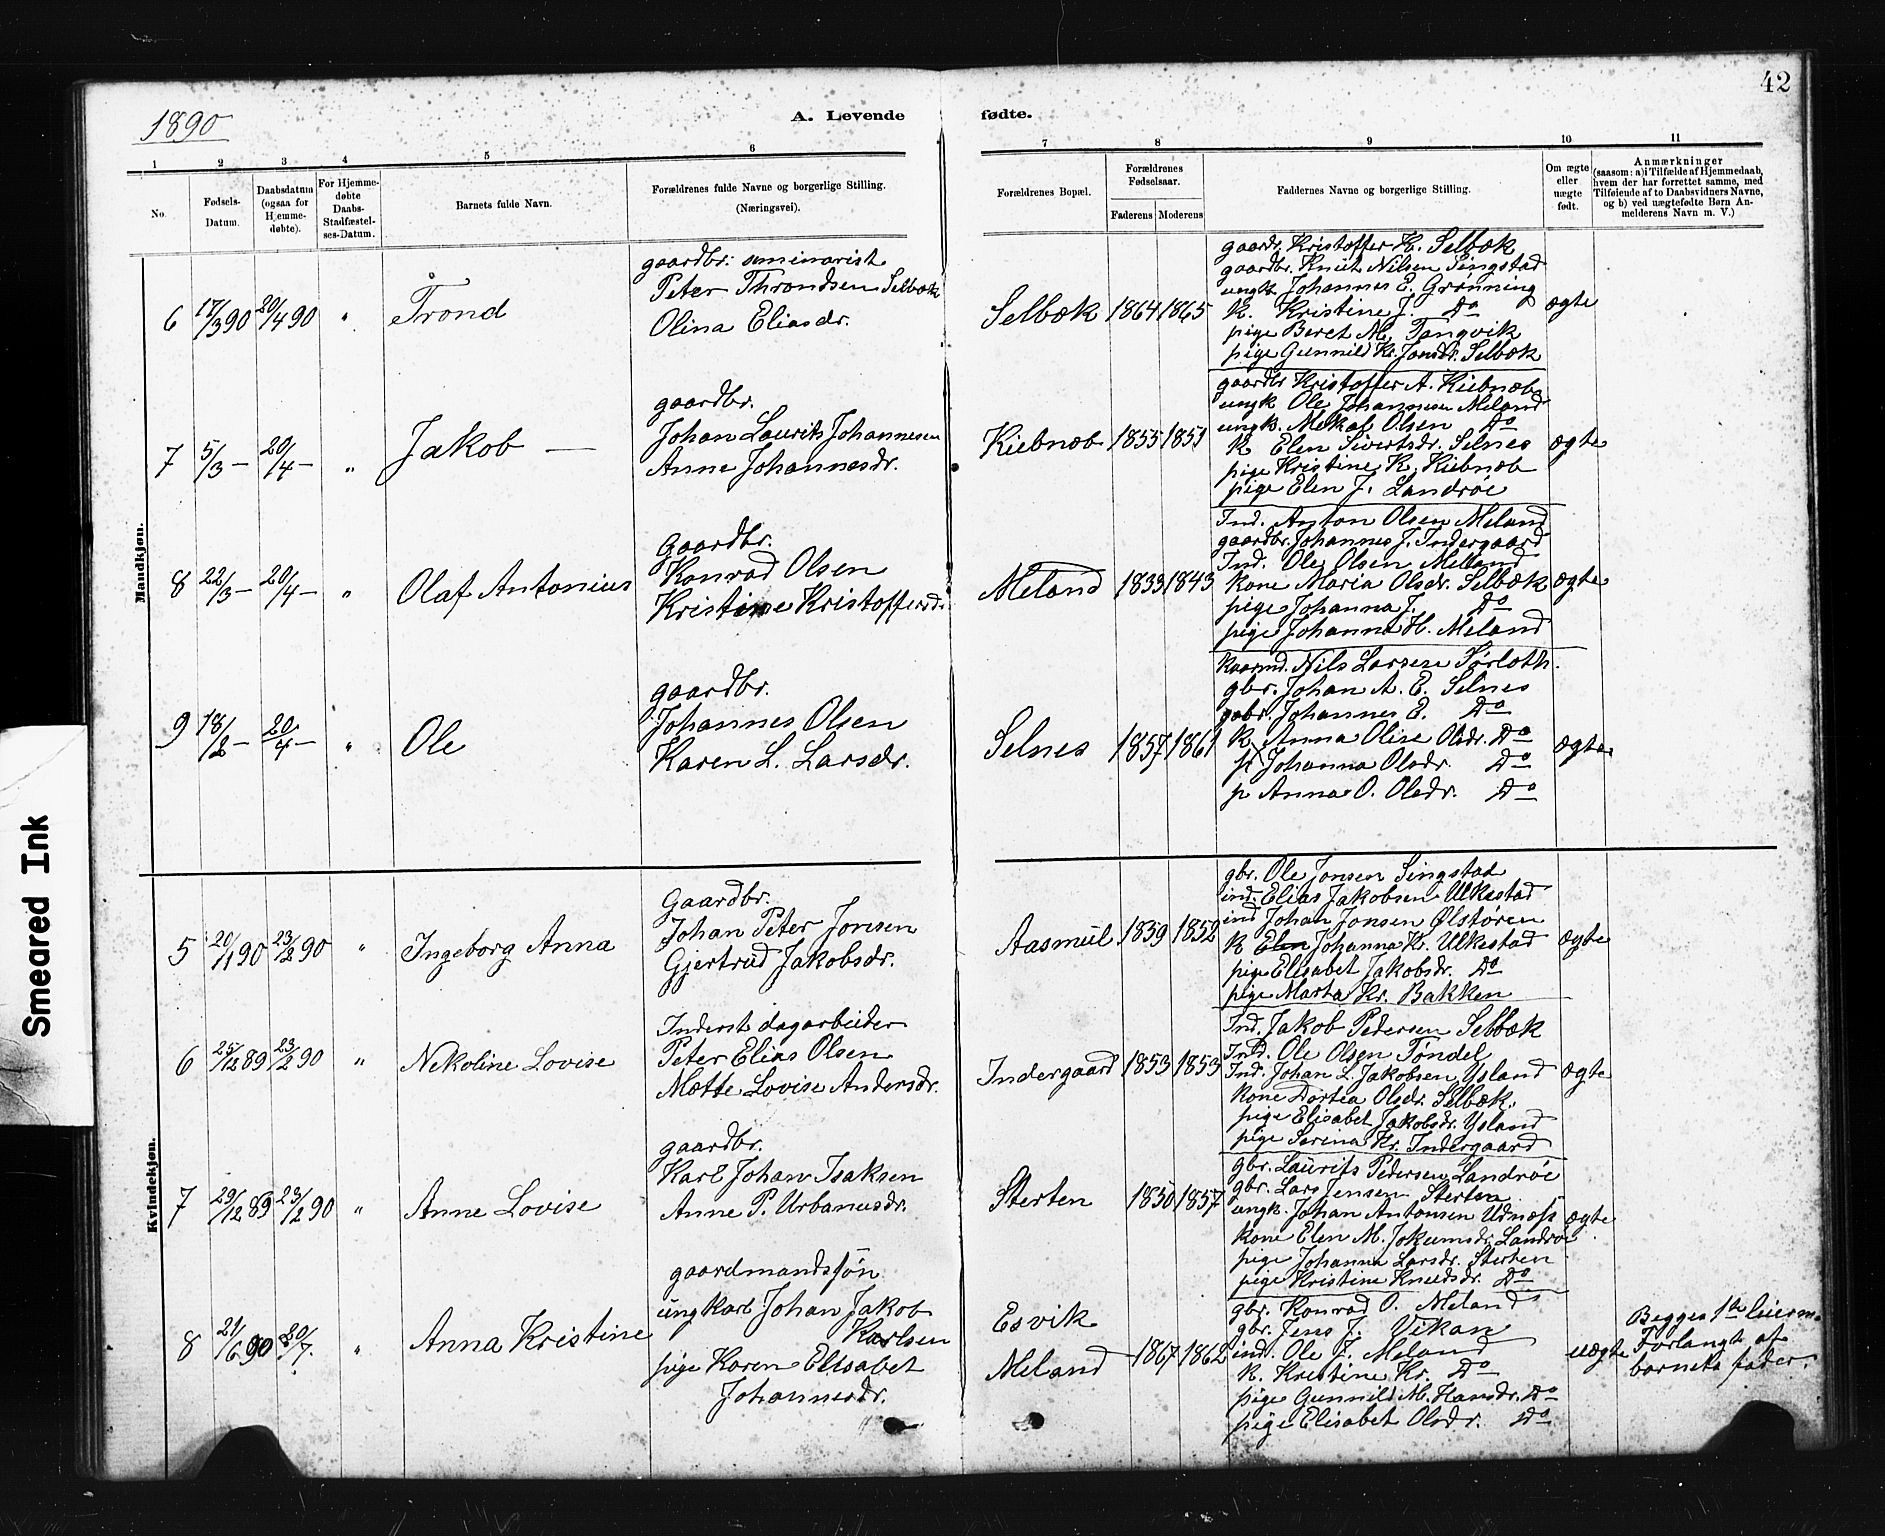 42
1890
A. Levende fødte.
1 2 3 4 5 6 7 8 9 10 11
No.
Fødsels-Datum.
Daabsdatum (ogsaa for Hjemme-døbte).
For Hjemme-døbte Daabs-Stadfæstel-ses-Datum.
Barnets fulde Navn.
Forældrenes fulde Navne og borgerlige Stilling.
(Næringsvei).
Forældrenes Bopæl.
Forældrenes Fødselsaar.
Faderens Moderens
Faddernes Navne og borgerlige Stilling.
Om ægte eller uægte født.
Anmærkninger
(saasom: a) i Tilfælde af Hjemmedaab,
hvem der har forrettet samme, med
Tilføiende af to Daabsvidners Navne,
og b) ved uægtefødte Børn An-
melderens Navn m. V.)
Mandkjøn.
6 17/3 90 20/4 90 " Trond
gaardbr. seminarist
Peter Throndsen Selbæk
Olina Eliasdr.
Selbæk 1864 1865
gaardr. Kristoffer H. Selbæk
gaardbr. Knut Nilsen Singstad
ungk. Johannes E. Grønning
K. Kristine J. Do
pige Beret M. Tangvik
pige Gunnild K. Jonsdr. Selbæk
ægte
7 5/3 — 20/4 — " Jakob —
gaardbr.
Johan Laurits Johannesen
Anne Johannesdr.
Kiebnæb 1855 1851
gaardbr Kristoffer A. Kiebnæb
ungk Ole Johannesen Meland
ungk. Mekal Olsen Do
K Elen Sivertsdr. Selnes
pige Kristine K. Kiebnæb
pige Elen J. Landrøe
ægte
8 22/3 — 20/4 — " Olaf Antonius
Gaardbr.
Konrad Olsen
Kristine Kristoffersdr.
Meland 1833 1843
Ind. Anton Olsen Meland
gaardbr. Johannes J. Indergaard
Ind. Ole Olsen Melland
Kone Maria Olsdr. Selbæk
pige Johanna J. Do
pige Johanna H. Meland
ægte
9 18/2 — 20/4 — " Ole
gaardbr.
Johannes Olsen
Karen L. Larsdr.
Selnes 1857 1861
Kaarmd. Nils Larsen Sørloth.
gbr. Johan A. E. Selnes
gbr. Johannes E. Do
K. Anna Olise Olsdr. Do
p Johanna Olsdr. Do
p Anna O. Olsdr. Do
ægte
Kvindekjøn.
5 20/1 90 23/2 90 " Ingeborg Anna
Gaardbr.
Johan Peter Jonsen
Gjertrud Jakobsdr.
Aasmul 1839 1852
gbr. Ole Jonsen Singstad
ind. Elias Jakobsen Ulkestad
ind Johan Jonsen Olstøren
K Elen Johanna K. Ulkestad
pige Elisabet Jakobsdr. Do
pige Marta Kr. Bakken
ægte
6 25/12 89 23/2 90 " Nekoline Lovise
Inderst dagarbeider
Peter Elias Olsen
Mette Lovise Andersdr.
Indergaard 1853 1853
Ind. Jakob Pedersen Selbæk
Ind. Ole Olsen Tøndel
Ind. Johan L. Jakobsen Ysland
Kone Dortea Olsdr. Selbæk.
pige Elisabet Jakobsdr. Ysland
pige Serina Kr. Indergaard
ægte
7 29/12 89 23/2 90 " Anne Lovise
gaardbr.
Karl Johan Isaksen
Anne P. Urbanusdr.
Sterten 1850 1857
gbr. Laurits Pedersen Landrøe
gbr. Lars Jensen Sterten
ungk. Johan Antonsen Udnæss
Kone Elen M. Jokumsdr. Landrøe
pige Johanna Larsdr. Sterten
pige Kristine Knudsdr. Do
ægte
8 21/6 90 20/7. " Anna Kristine
gaardmandssøn
ungkarl Johan Jakob
Karlsen
pige Karen Elisabet
Johannesdr.
Esvik
Meland 1867 1862
gbr. Konrad O. Meland
gbr. Jens J. Vikan
ind. Ole J. Meland
K. Kristine Kr. Do
pige Gunnild M. Hansdr. Do
pige Elisabet Olsdr. Do
uægte
Begges 1ste leierm.
Forlangt af
barnets fader.
Smeared Ink